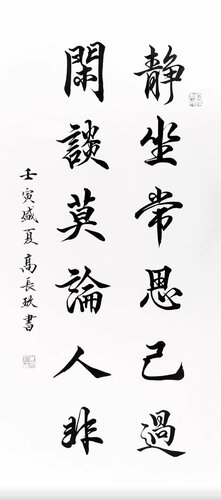 靜坐常思己過
閑談莫論人非
壬寅盛夏高長玖書